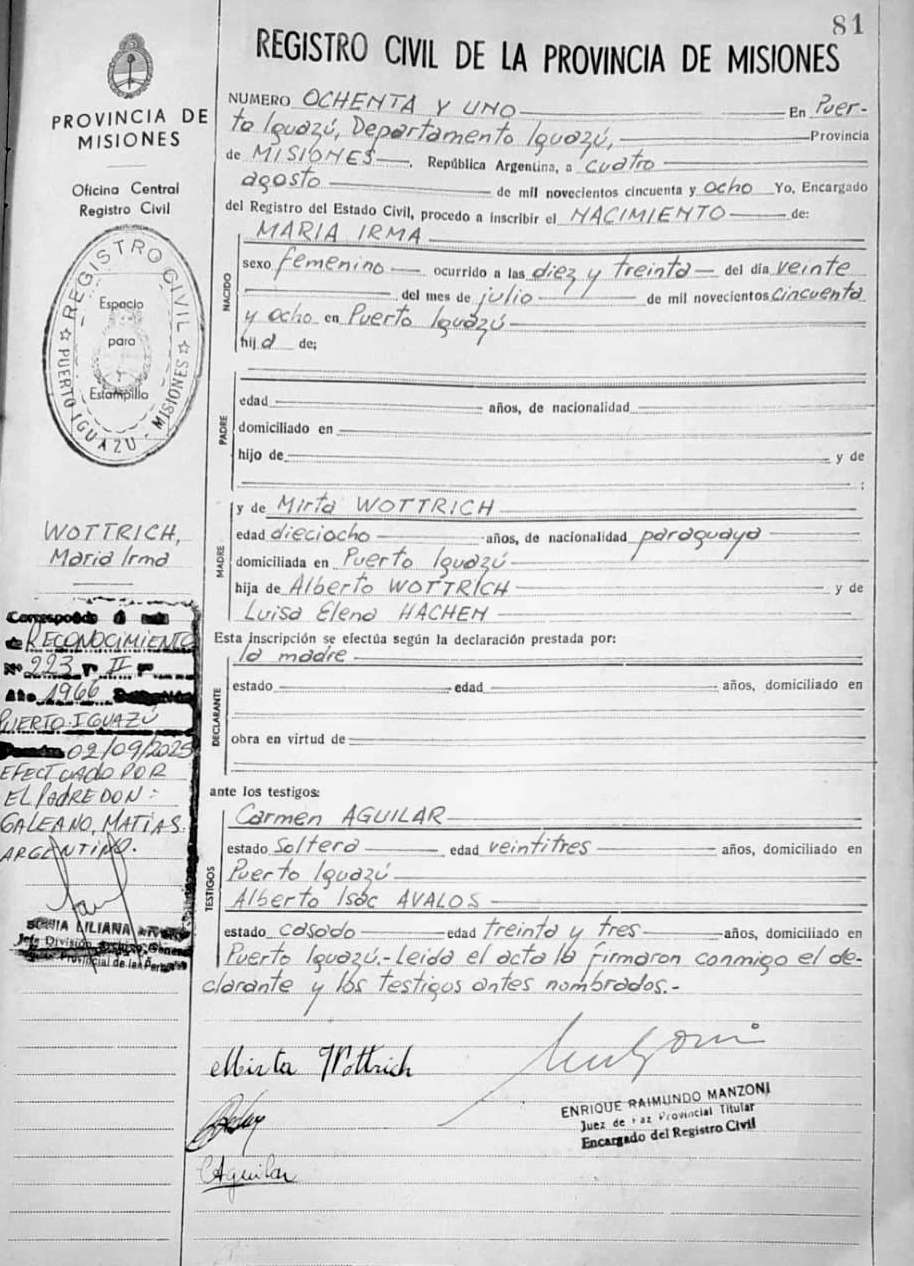 81
REGISTRO CIVIL DE LA PROVINCIA DE MISIONES
PROVINCIA DE
MISIONES
Oficina Central
Registro Civil
REGISTRO CIVIL
PUERTO IGUAZU - MISIONES
Espacio
para
Estampilla
WOTTRICH,
Maria Irma
Corresponde
RECONOCIMIENTO
Nº 223 Tº II Fº
Año 1966
PUERTO IGUAZÚ
02/09/2025
EFECTUADO POR
EL PADRE DON:
GALEANO, MATIAS.
ARGENTINO.
LILIANA
Jefe División
Provincial de las Personas
NUMERO OCHENTA Y UNO En Puer-
to Iguazú, Departamento Iguazú, Provincia
de MISIONES, República Argentina, a cuatro
agosto de mil novecientos cincuenta y ocho Yo, Encargado
del Registro del Estado Civil, procedo a inscribir el NACIMIENTO de:
NACIDO
MARIA IRMA
sexo femenino ocurrido a las diez y treinta del día veinte
del mes de julio de mil novecientos cincuenta
y ocho en Puerto Iguazú
hija de;
PADRE
edad años, de nacionalidad
domiciliado en
hijo de y de
;
MADRE
y de Mirta WOTTRICH
edad dieciocho años, de nacionalidad paraguaya
domiciliada en Puerto Iguazú
hija de Alberto WOTTRICH y de
Luisa Elena HACHEN
Esta inscripción se efectúa según la declaración prestada por:
DECLARANTE
la madre
estado edad años, domiciliado en
obra en virtud de
ante los testigos:
TESTIGOS
Carmen AGUILAR
estado Soltera edad veintitres años, domiciliado en
Puerto Iguazú
Alberto Isac AVALOS
estado casado edad treinta y tres años, domiciliado en
Puerto Iguazú.- Leida el acta la firmaron conmigo el de-
clarante y los testigos antes nombrados.-
Mirta Wottrich
CAguilar
ENRIQUE RAIMUNDO MANZONI
Juez de Paz Provincial Titular
Encargado del Registro Civil